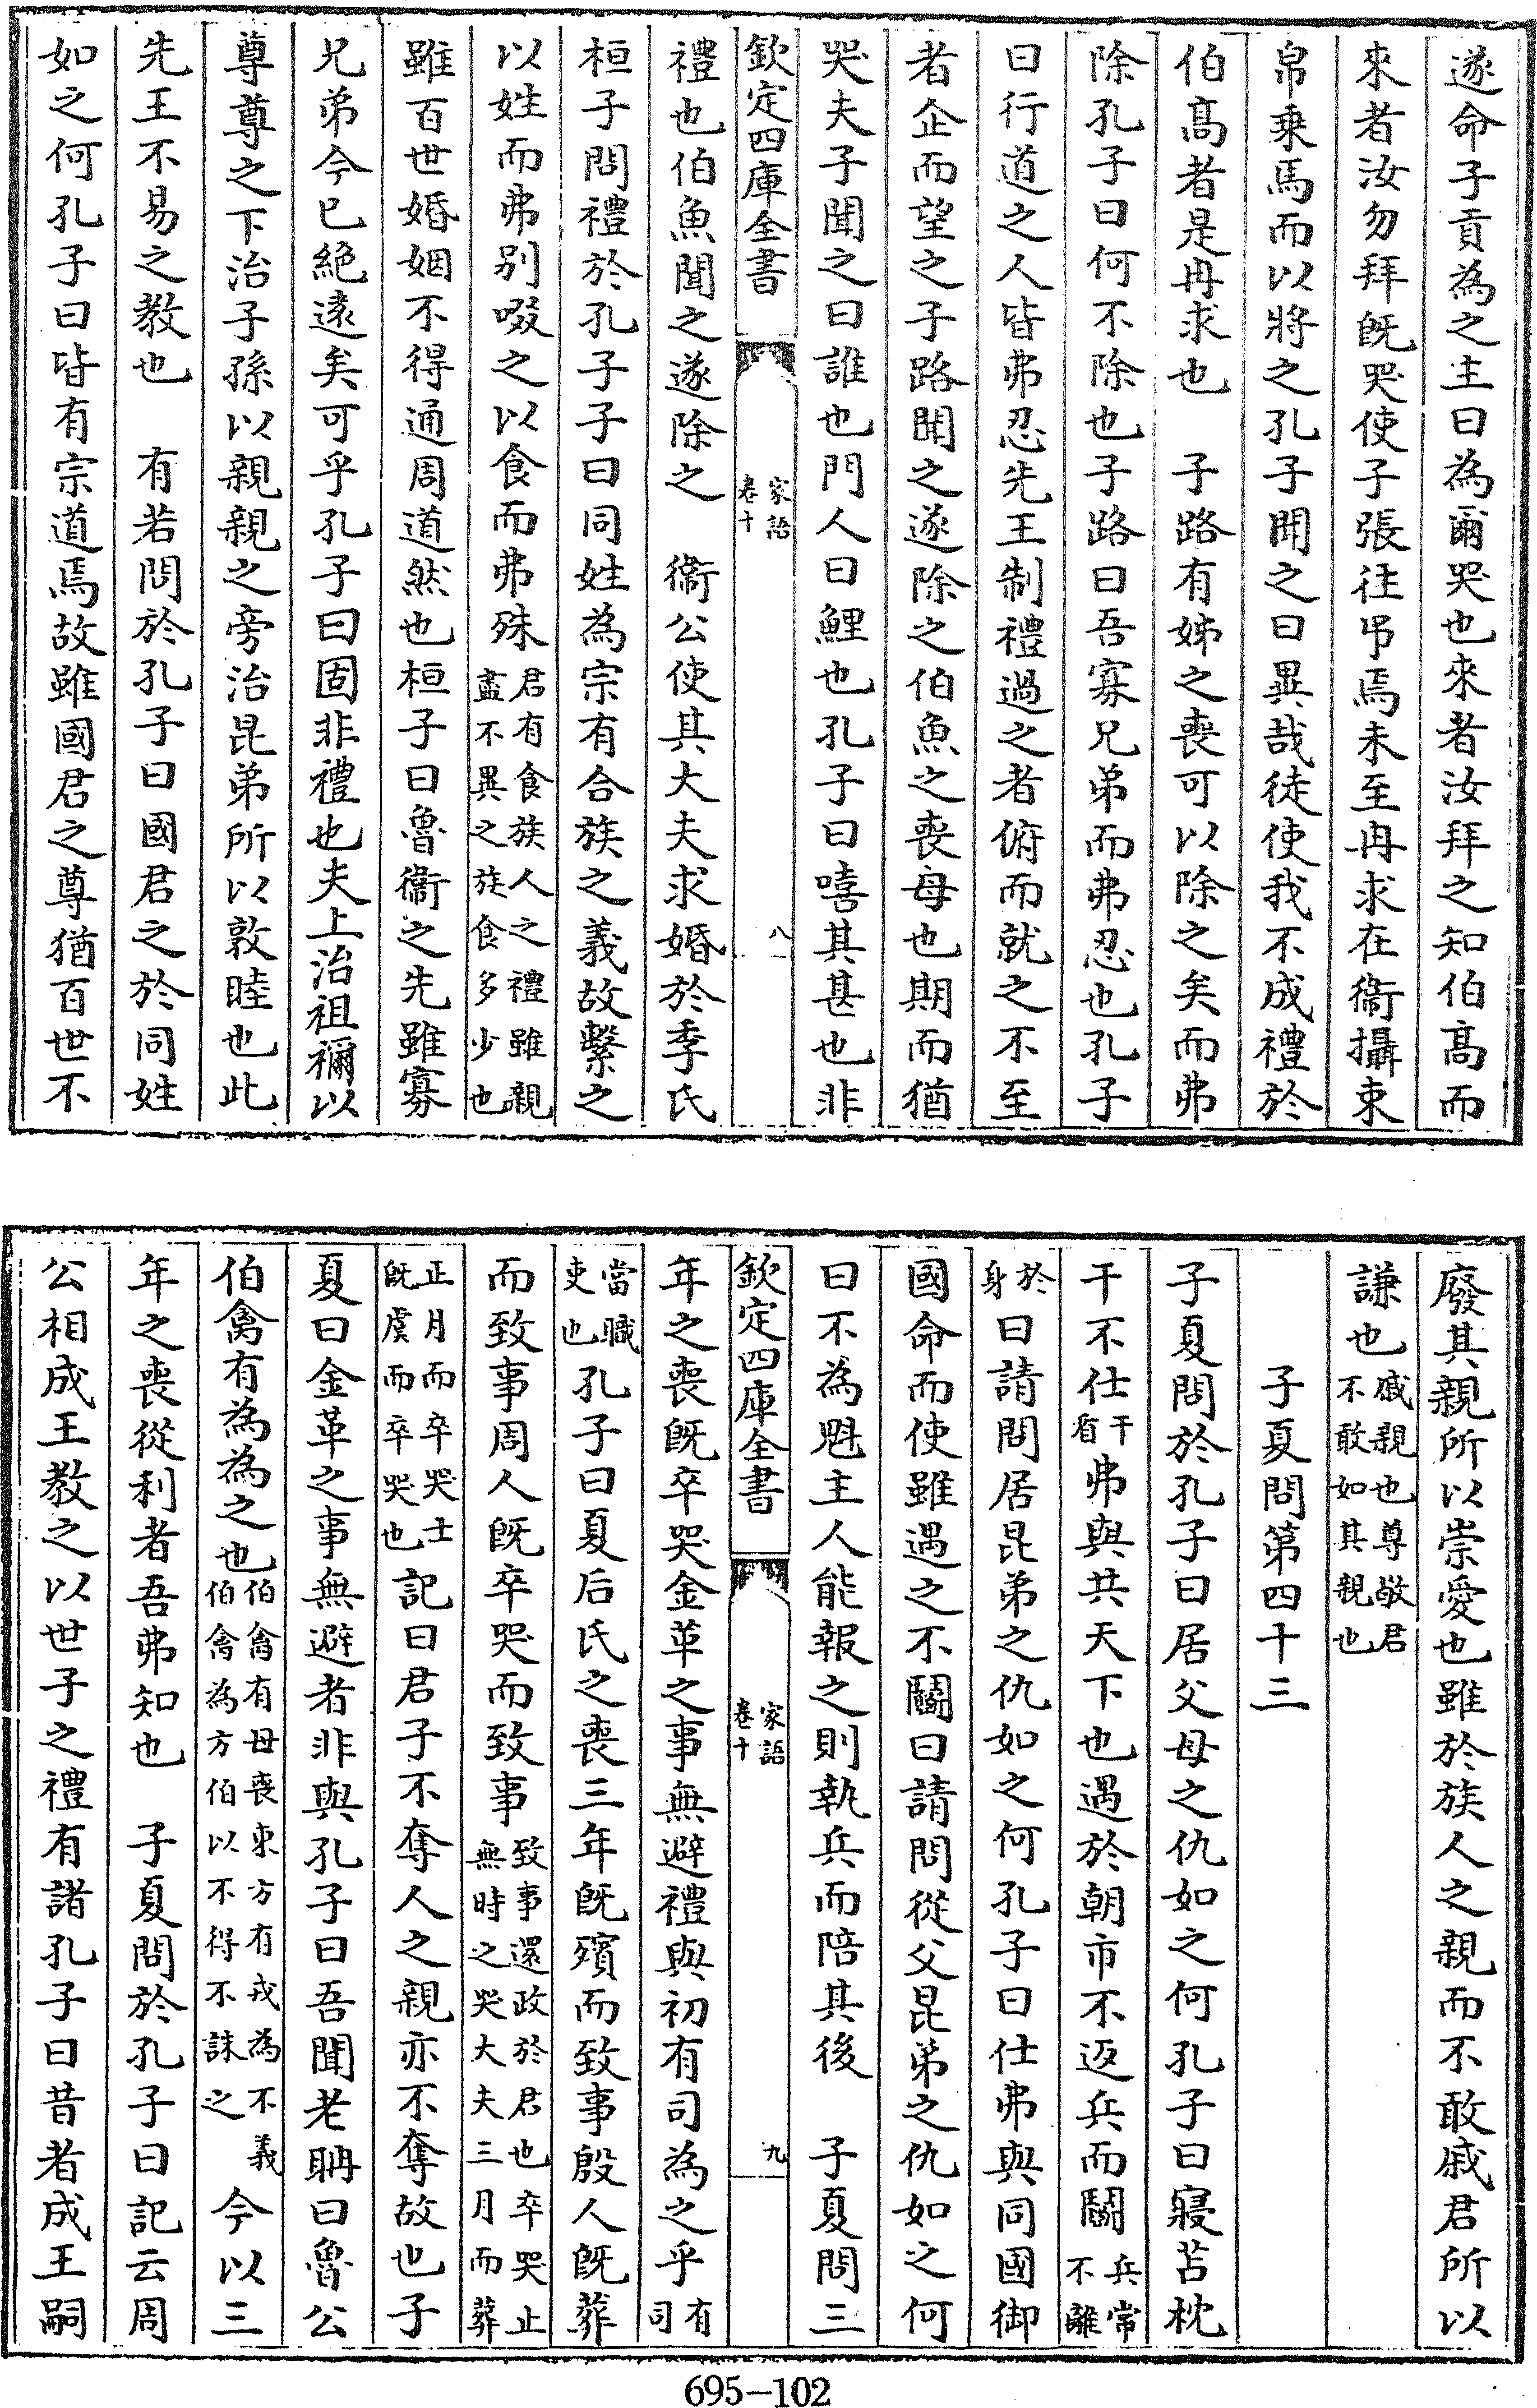 遂命子貢為之主曰為爾哭也來者汝拜之知伯髙而
來者汝勿拜旣哭使子張往弔焉未至冉求在衞攝束
帛乗馬而以將之孔子聞之曰異哉徒使我不成禮於
伯髙者是冉求也　子路有姊之喪可以除之矣而弗
除孔子曰何不除也子路曰吾寡兄弟而弗忍也孔子
曰行道之人皆弗忍先王制禮過之者俯而就之不至
者企而望之子路聞之遂除之伯魚之喪母也期而猶
哭夫子聞之曰誰也門人曰鯉也孔子曰嘻其甚也非
欽定四庫全書
家語
卷十
八
禮也伯魚聞之遂除之　衞公使其大夫求婚於季氏
桓子問禮於孔子子曰同姓為宗有合族之義故繫之
以姓而弗别啜之以食而弗殊君有食族人之禮雖親盡不異之族食多少也
雖百世婚姻不得通周道然也桓子曰魯衞之先雖寡
兄弟今已絶逺矣可乎孔子曰固非禮也夫上治祖禰以
尊尊之下治子孫以親親之旁治昆弟所以敦睦也此
先王不易之教也　有若問於孔子曰國君之於同姓
如之何孔子曰皆有宗道焉故雖國君之尊猶百世不
廢其親所以崇愛也雖於族人之親而不敢戚君所以
謙也戚親也尊敬君不敢如其親也
子夏問第四十三
子夏問於孔子曰居父母之仇如之何孔子曰寢苫枕
干不仕干盾弗與共天下也遇於朝市不返兵而鬬兵常不離
於身曰請問居昆弟之仇如之何孔子曰仕弗與同國御
國命而使雖遇之不鬬曰請問從父昆弟之仇如之何
曰不為魁主人能報之則執兵而陪其後　子夏問三
欽定四庫全書
家語
卷十
九
年之喪旣卒哭金革之事無避禮與初有司為之乎有司
當職吏也孔子曰夏后氏之喪三年旣殯而致事殷人旣葬
而致事周人旣卒哭而致事致事還政於君也卒哭止無時之哭大夫三月而葬
正月而卒哭士旣虞而卒哭也記曰君子不奪人之親亦不奪故也子
夏曰金革之事無避者非與孔子曰吾聞老聃曰魯公
伯禽有為為之也伯禽有母喪東方有戎為不義伯禽為方伯以不得不誅之今以三
年之喪從利者吾弗知也　子夏問於孔子曰記云周
公相成王教之以世子之禮有諸孔子曰昔者成王嗣
695-102